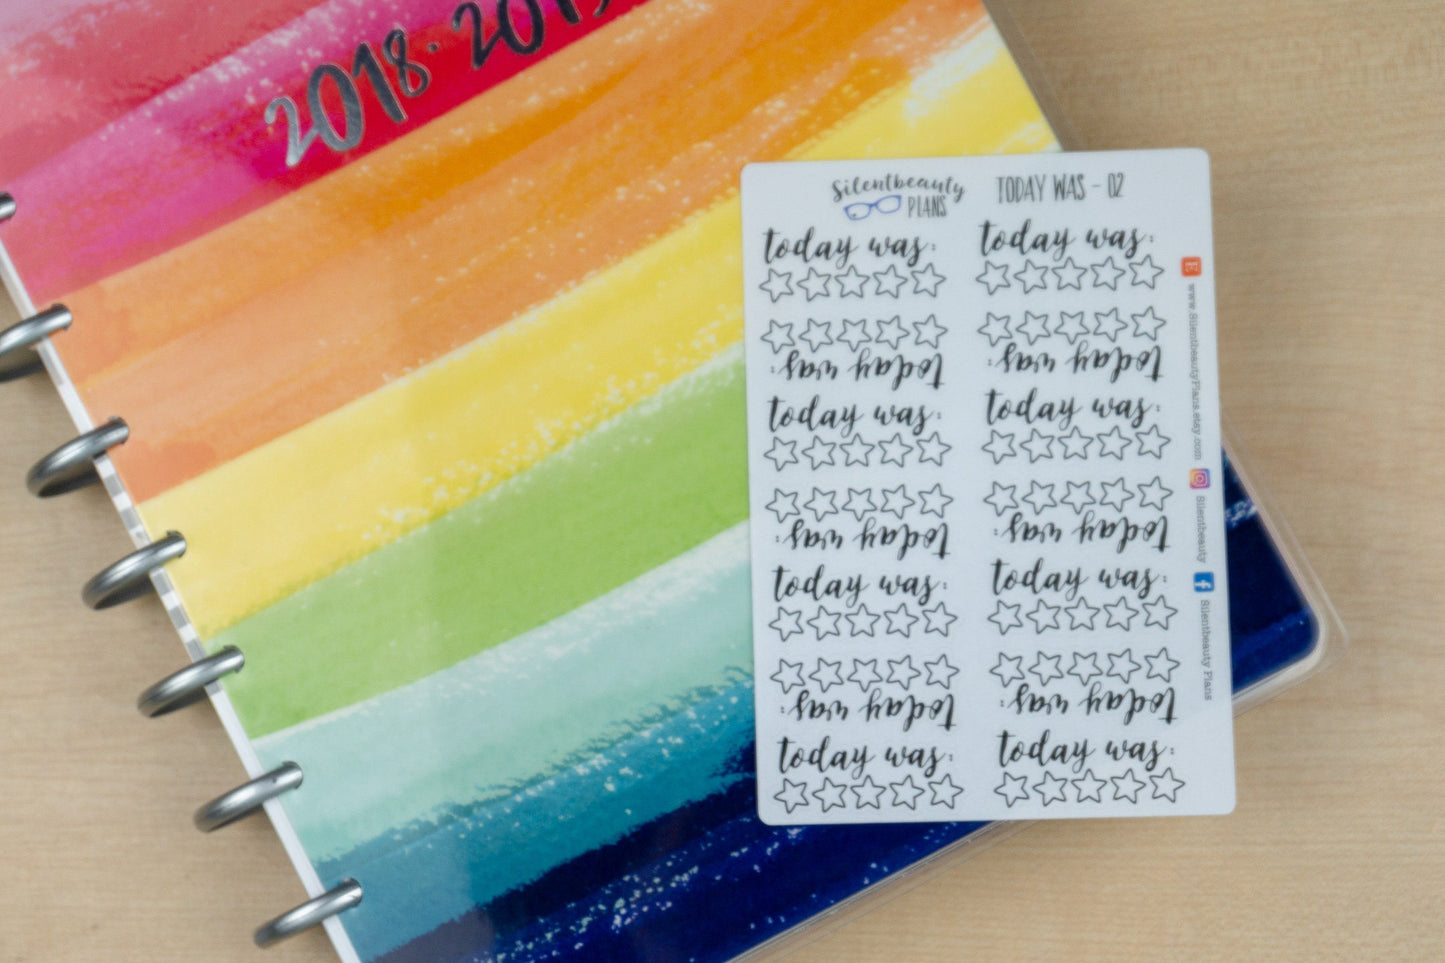 2018·2019
Silentbeauty
PLANS
TODAY WAS - 02
today was:
today was:
today was:
today was:
today was:
today was:
today was:
today was:
today was:
today was:
today was:
today was:
today was:
today was:
www.SilentbeautyPlans.etsy.com
Silentbeauty
Silentbeauty Plans